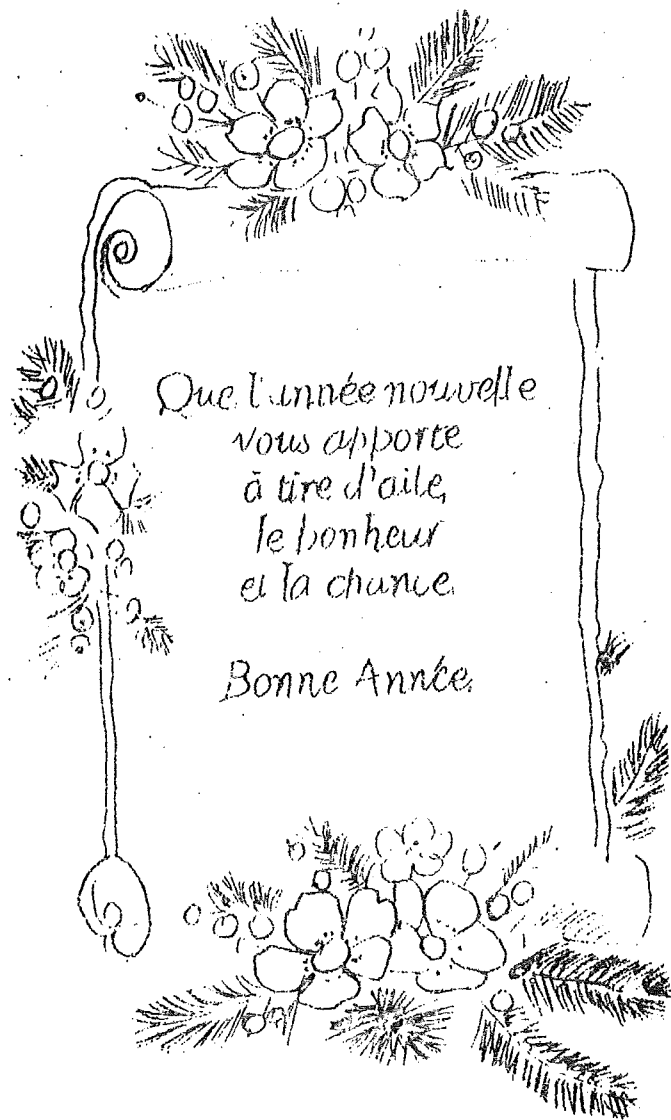 Que l'année nouvelle
vous apporte
à tire d'aile,
le bonheur
et la chance.
Bonne Année.